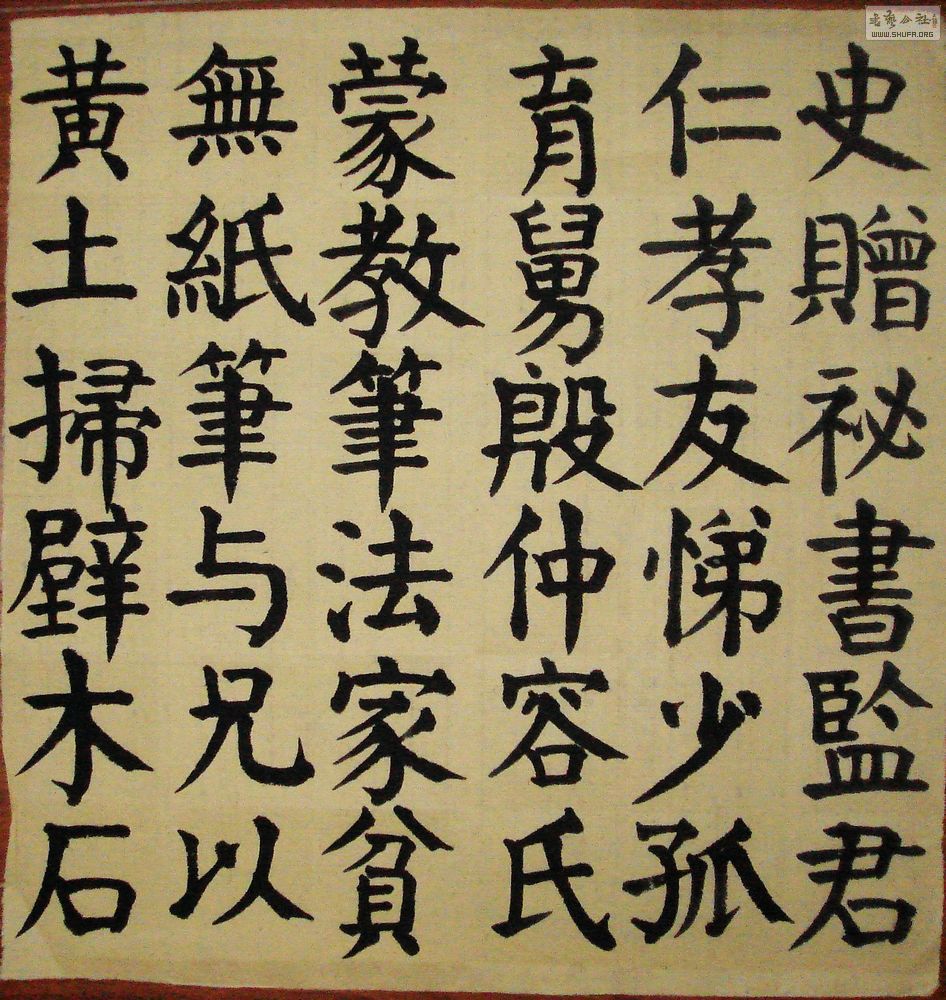 史贈祕書監君
仁孝友悌少孤
育舅殷仲容氏
蒙教筆法家貧
無紙筆与兄以
黄土掃壁木石
WWW.SHUFA.ORG